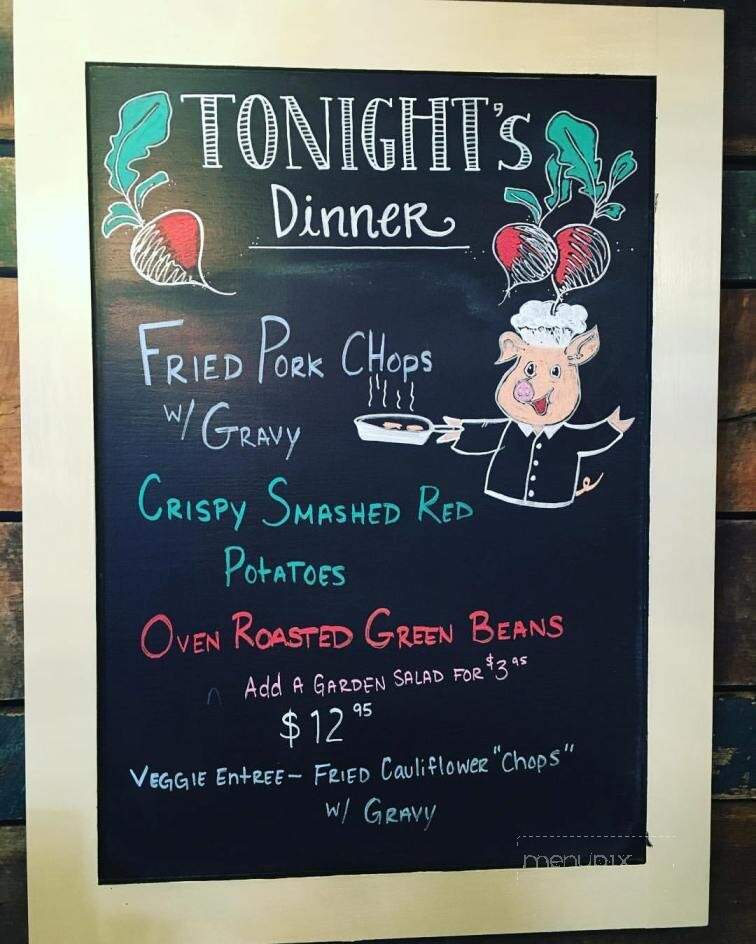 TONIGHT's
Dinner
FRIED PORK CHOPS
w/ GRAVY
CRISPY SMASHED RED
POTATOES
OVEN ROASTED GREEN BEANS
Add A GARDEN SALAD FOR $3.95
$12.95
VEGGIE ENTREE- FRIED Cauliflower "Chops"
w/ GRAVY
menupix